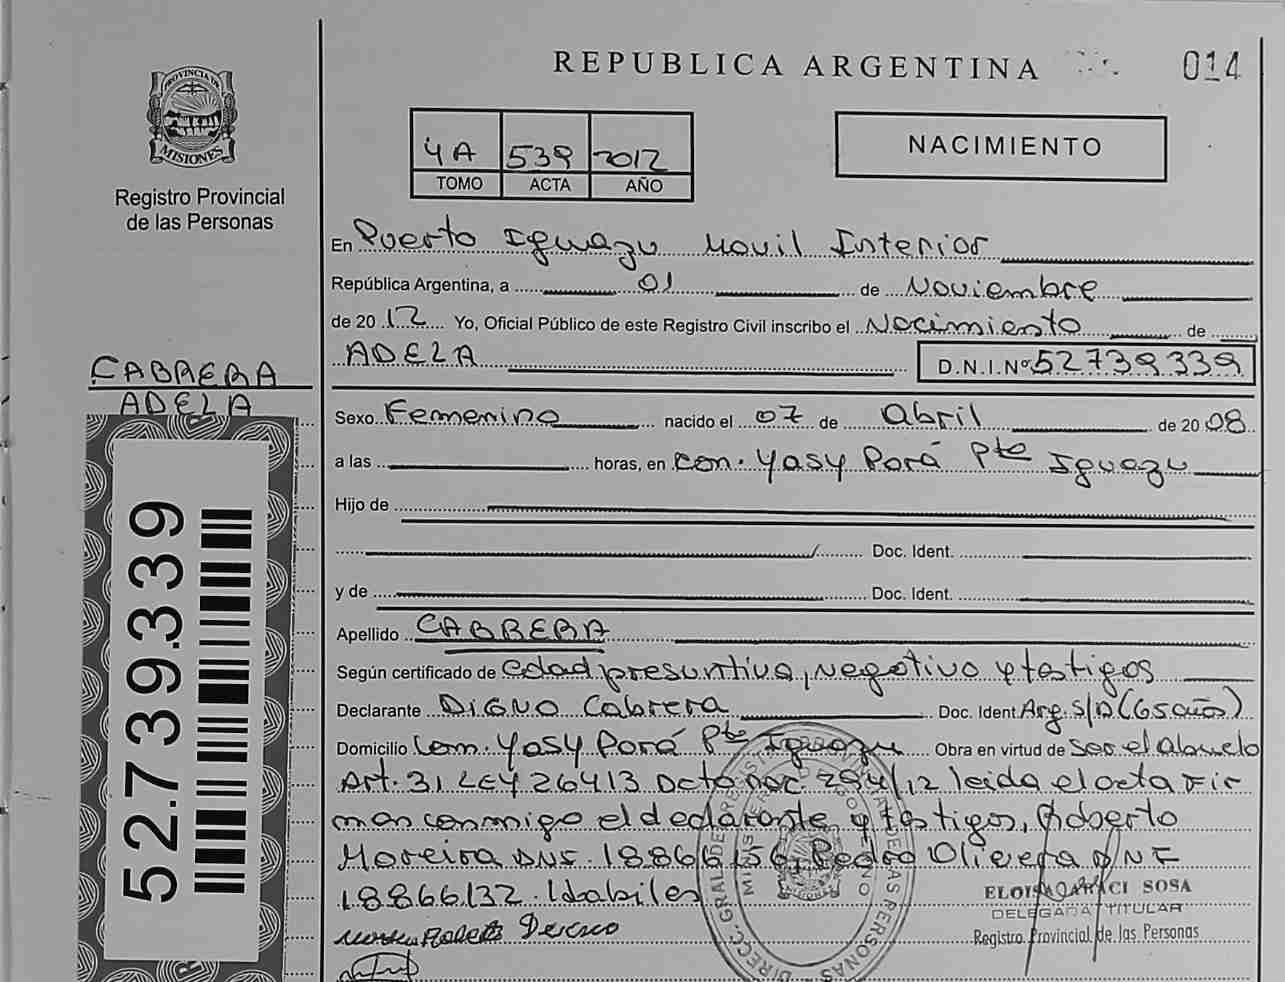 REPUBLICA ARGENTINA
014
PROVINCIA DE
MISIONES
Registro Provincial
de las Personas
4A 539 2012
TOMO ACTA AÑO
NACIMIENTO
En Puerto Iguazu Movil Interior
República Argentina, a 01 de Noviembre
de 2012 Yo, Oficial Público de este Registro Civil inscribo el Nacimiento de
ADELA
D.N.I.Nº 52739339
CABRERA
ADELA
52.739.339
Sexo Femenino nacido el 07 de Abril de 2008
a las horas, en Con. Yasy Porá Pto Iguazu
Hijo de
Doc. Ident.
y de Doc. Ident.
Apellido CABRERA
Según certificado de edad presuntiva, negativo y testigos
Declarante DIGNO Cabrera Doc. Ident Arg. S/D (65 años)
Domicilio Com. Yasy Porá Pto Iguazu Obra en virtud de Ser el Abuelo
Art. 31 LEY 26413 Dcto nac. 294/12 leida el acta Fir
man conmigo el declarante y testigos, Roberto
Moreira DNI. 18866156, Pedro Olivera DNI
18866132. Habiles
ELOISA ARACI SOSA
DELEGADA TITULAR
Registro Provincial de las Personas